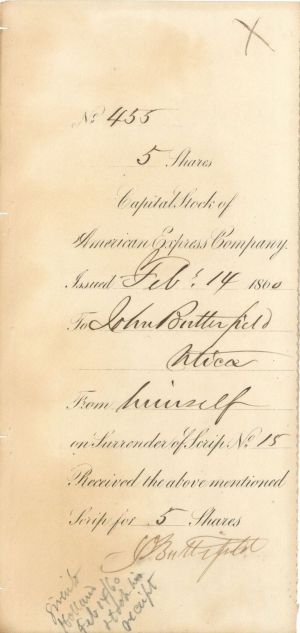 X
No 455
5 Shares
Capital Stock of
American Express Company.
Issued Feby. 14 1860
To John Butterfield
Utica
From himself
on Surrender of Scrip No. 15
Received the above mentioned
Scrip for 5 Shares
J Butterfield
Holland
Feb 14/60
& took his
receipt